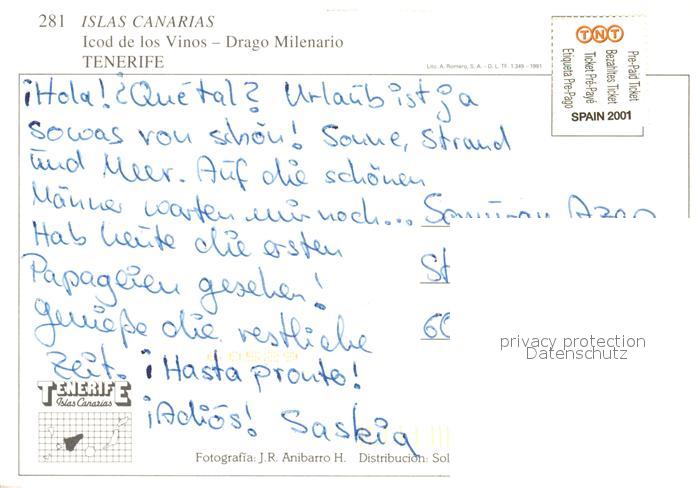 281 ISLAS CANARIAS
Icod de los Vinos – Drago Milenario
TENERIFE
Lito. A. Romero, S. A. - D. L. TF. 1.349 - 1991
TNT
Pre-Paid Ticket
Bezahltes Ticket
Ticket Pré-Payé
Etiqueta Pre-Pago
SPAIN 2001
¡Hola! ¿Qué tal? Urlaub ist ja
sowas von schön! Sonne, Strand
und Meer. Auf die schönen
Männer warten wir noch...
Hab heute die ersten
Papageien gesehen!
Genieße die restliche
Zeit. ¡Hasta pronto!
¡Adiós! Saskia
St
60
privacy protection
Datenschutz
TENERIFE
Islas Canarias
Fotografía: J.R. Anibarro H. Distribución: Sol